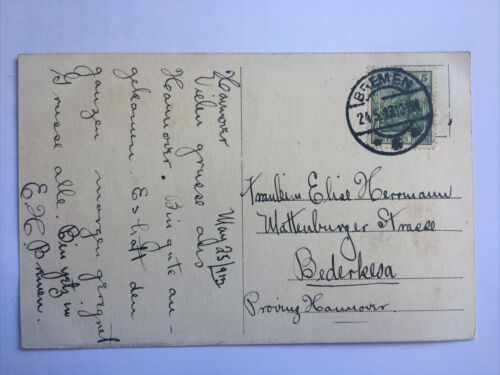 Hannover May
Vielen gruese
Hannover. Bin gute an-
gekomen. Es hatt den
ganzen morgen geregnet
Gruese alle. Bin jetz in
E.H. Bremen.
BREMEN
5
Fraulein Elise Herrmann
Mattenburger Strasse
Bederkesa
Provinz Hannover.